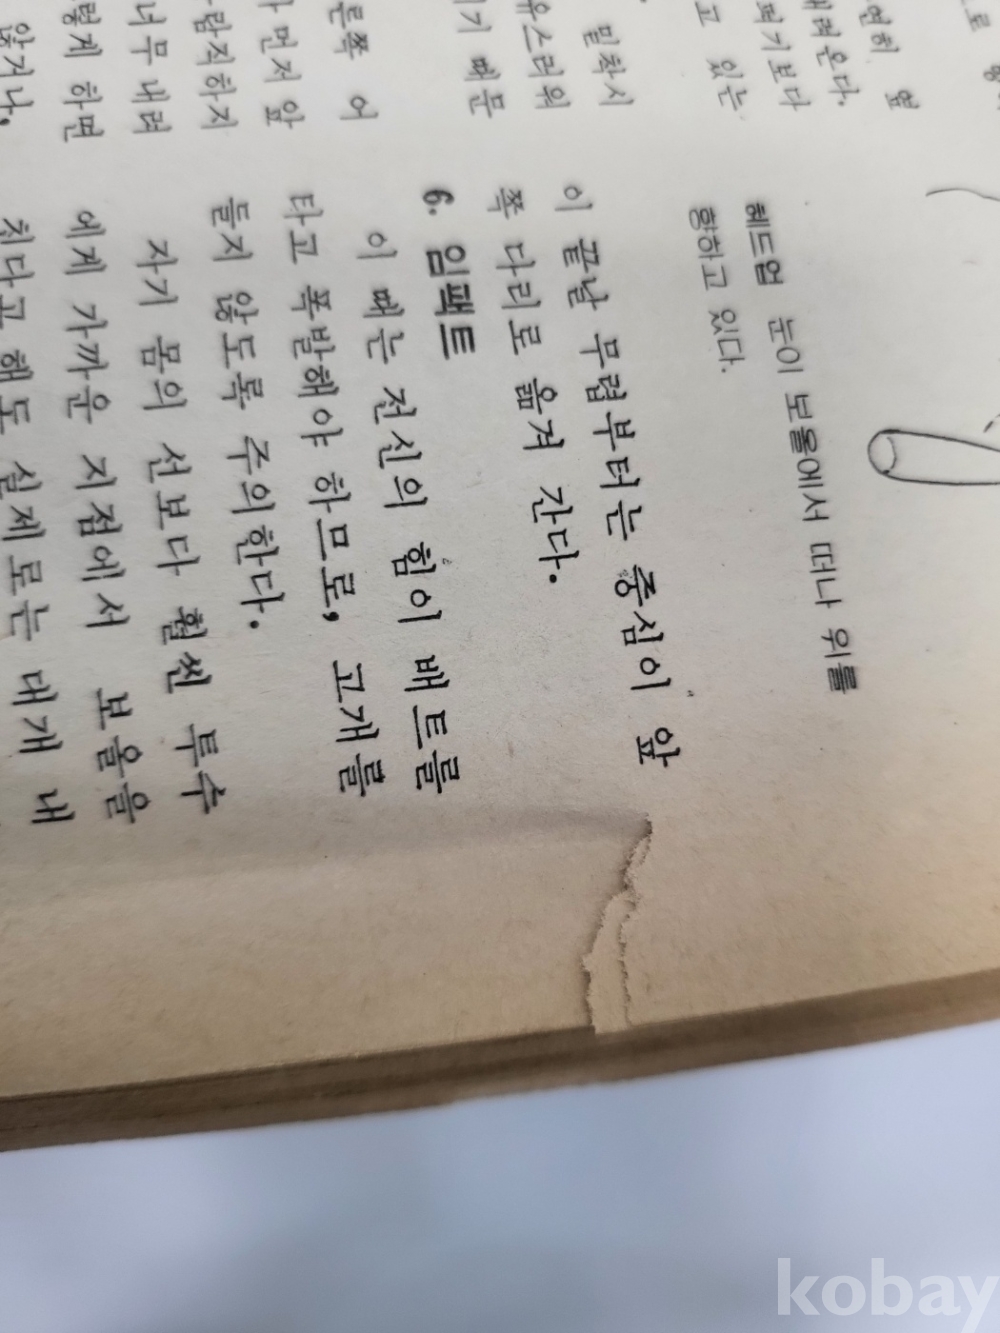 앞
내려온다.
펴기보다
고 있는
밀착시
우스러워
기 때문
른쪽 어
먼저 앞
람직하지
너무 내려
렇게 하면
않거나,
헤드업 눈이 보올에서 떠나 위를
향하고 있다.
이 끝날 무렵부터는 중심이 앞
쪽 다리로 옮겨 간다.
6. 임팩트
이 때는 전신의 힘이 배트를
타고 폭발해야 하므로, 고개를
들지 않도록 주의한다.
자기 몸의 선보다 훨씬 투수
에게 가까운 지점에서 보올을
친다고 해도 실제로는 대개 내
kobay